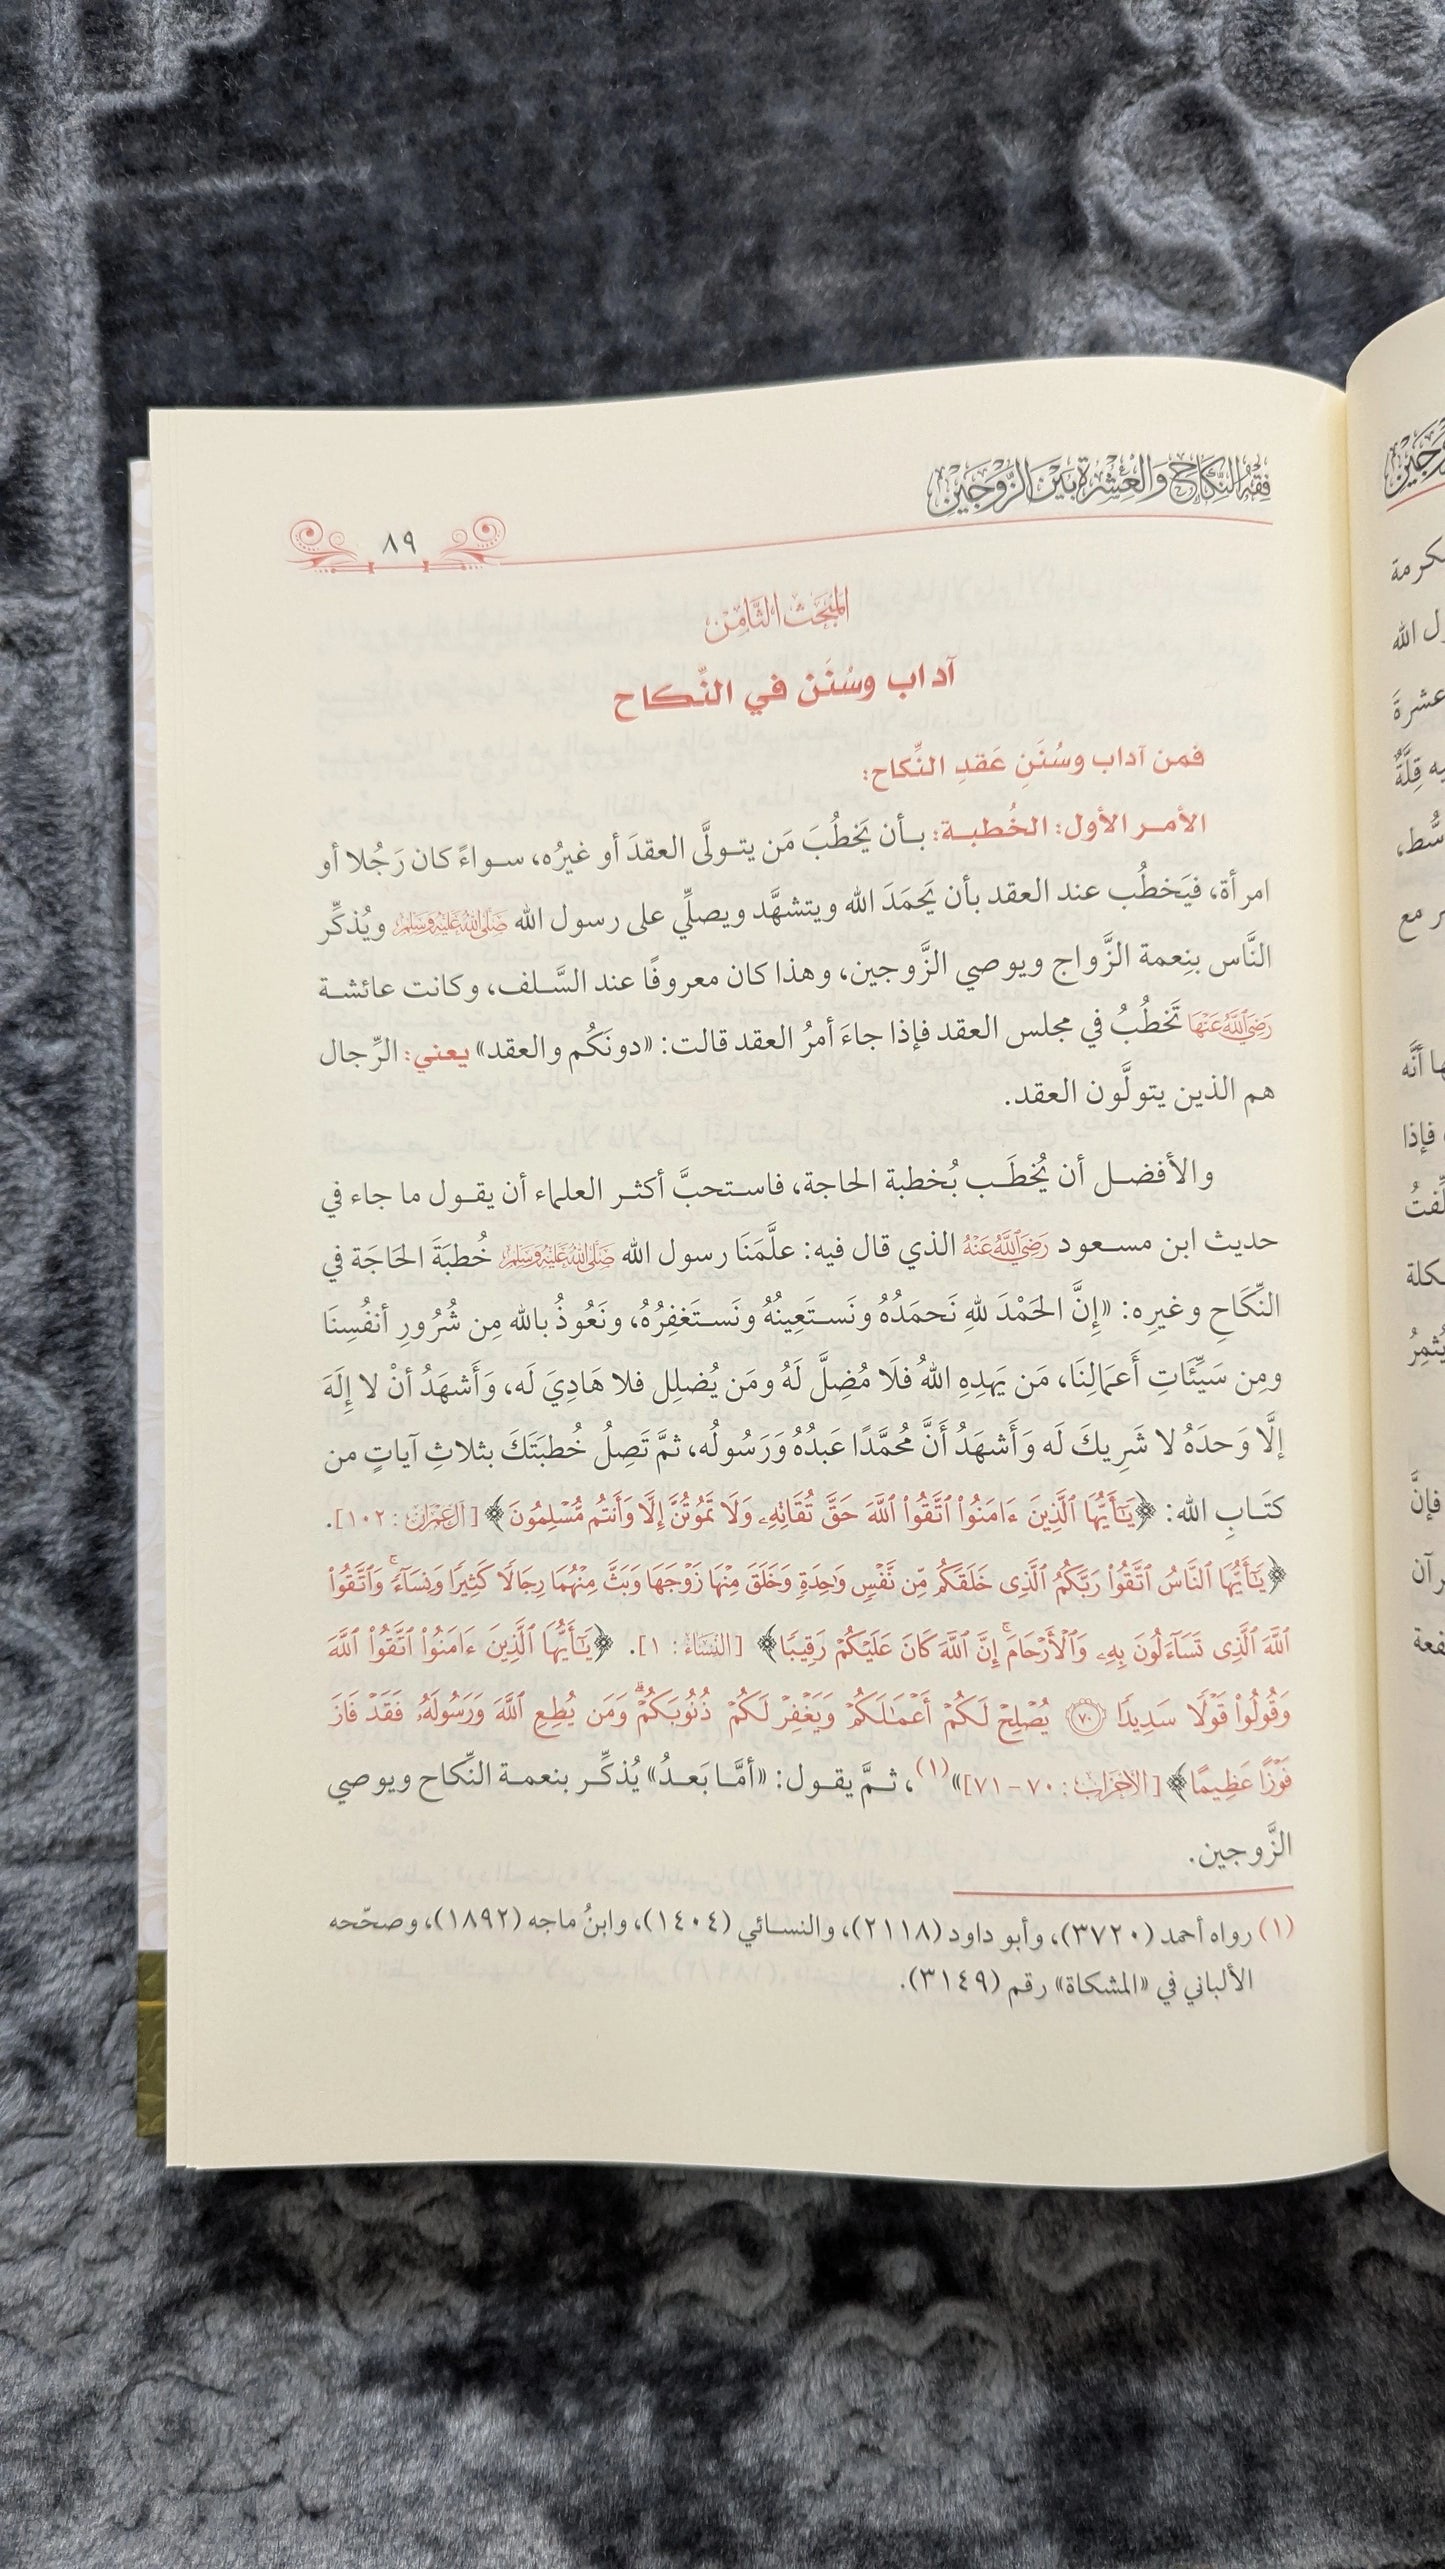 فِقْهُ النِّكَاحِ وَالْعِشْرَةِ بَيْنَ الزَّوْجَيْنِ
٨٩
المَبْحَثُ الثَّامِنُ
آداب وسُنَن في النِّكاح
فمن آداب وسُنَنِ عَقدِ النِّكاح:
الأمـر الأول: الخُطبـة: بـأن يَخطُبَ مَن يتـولَّى العقدَ أو غيرُه، سـواءً كان رَجُلا أو
امرأة، فيَخطُب عند العقد بأن يَحمَدَ الله ويتشهَّد ويصلِّي على رسول الله ﷺ ويُذكِّر
النَّاس بنِعمة الزَّواج ويوصي الزَّوجين، وهذا كان معروفًا عند السَّـلف، وكانت عائشـة
رَضِيَٱللَّهُعَنْهَا تَخطُبُ في مجلس العقد فإذا جاءَ أمرُ العقد قالت: «دونَكُم والعقد» يعني: الرِّجال
هم الذين يتولَّون العقد.
والأفضـل أن يُخطَـب بُخطبة الحاجة، فاسـتحبَّ أكثـر العلماء أن يقـول ما جاء في
حديث ابن مسـعود رَضِيَٱللَّهُعَنْهُ الذي قال فيه: علَّمَنَا رسول الله ﷺ خُطبَةَ الحَاجَة في
النِّكَاحِ وغيرِه: «إِنَّ الحَمْدَ للهِ نَحمَدُهُ ونَسـتَعِينُهُ ونَسـتَغفِرُهُ، ونَعُوذُ بالله مِن شُرُورِ أنفُسِنَا
ومِن سَيِّئَاتِ أَعمَالِنَا، مَن يَهدِهِ اللهُ فَلَا مُضِلَّ لَهُ ومَن يُضلِل فلا هَادِيَ لَه، وَأَشهَدُ أنْ لا إِلَهَ
إلَّا وَحدَهُ لا شَرِيكَ لَه وَأَشهَدُ أَنَّ مُحمَّدًا عَبدُهُ وَرَسُولُه، ثمَّ تَصِلُ خُطبَتَكَ بثلاثِ آياتٍ من
كتَـابِ الله: ﴿يَٰٓأَيُّهَا ٱلَّذِينَ ءَامَنُوا۟ ٱتَّقُوا۟ ٱللَّهَ حَقَّ تُقَاتِهِۦ وَلَا تَمُوتُنَّ إِلَّا وَأَنتُم مُّسْلِمُونَ﴾ [آل عمران: ١٠٢].
﴿يَٰٓأَيُّهَا ٱلنَّاسُ ٱتَّقُوا۟ رَبَّكُمُ ٱلَّذِى خَلَقَكُم مِّن نَّفْسٍ وَٰحِدَةٍ وَخَلَقَ مِنْهَا زَوْجَهَا وَبَثَّ مِنْهُمَا رِجَالًا كَثِيرًا وَنِسَآءً ۚ وَٱتَّقُوا۟
ٱللَّهَ ٱلَّذِى تَسَآءَلُونَ بِهِۦ وَٱلْأَرْحَامَ ۚ إِنَّ ٱللَّهَ كَانَ عَلَيْكُمْ رَقِيبًا﴾ [النساء: ١]. ﴿يَٰٓأَيُّهَا ٱلَّذِينَ ءَامَنُوا۟ ٱتَّقُوا۟ ٱللَّهَ
وَقُولُوا۟ قَوْلًا سَدِيدًا ۝٧٠ يُصْلِحْ لَكُمْ أَعْمَٰلَكُمْ وَيَغْفِرْ لَكُمْ ذُنُوبَكُمْ ۗ وَمَن يُطِعِ ٱللَّهَ وَرَسُولَهُۥ فَقَدْ فَازَ
فَوْزًا عَظِيمًا﴾ [الأحزاب: ٧٠ - ٧١]»(١)، ثـمَّ يقـول: «أمَّا بَعـدُ» يُذكِّـر بنعمـة النِّكاح ويوصي
الزَّوجين.
(١) رواه أحمد (٣٧٢٠)، وأبو داود (٢١١٨)، والنسـائي (١٤٠٤)، وابنُ ماجه (١٨٩٢)، وصحّحه
الألباني في «المشكاة» رقم (٣١٤٩).